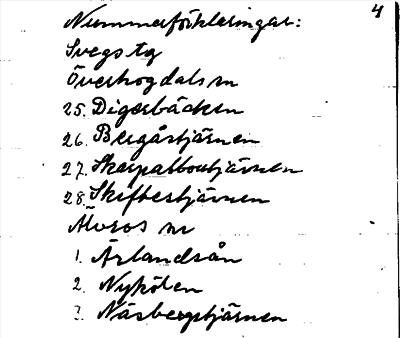 4
Nummerförklaringar:
Svegs tg
Överhogdals sn
25. Digerbäcken
26. Bergåstjärnen
27. Skarpabbortjärnen
28. Skiftestjärnen
Älvros sn
1. Ärlandsån
2. Nyköten
3. Näsbergstjärnen